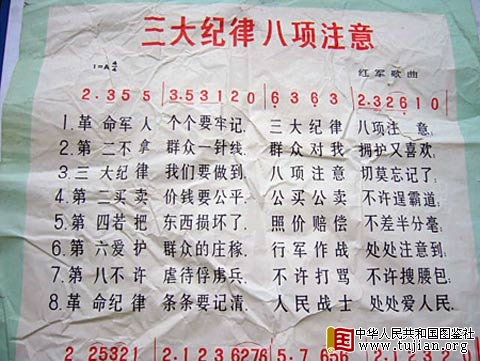 三大纪律八项注意
1=A 4/4
红军歌曲
2·3 5 5 3·5 3 1 2 0 6 3 6 3 2·3 2 6 1 0
1.革命军人 个个要牢记, 三大纪律 八项注意;
2.第二不拿 群众一针线, 群众对我 拥护又喜欢;
3.三大纪律 我们要做到, 八项注意 切莫忘记了;
4.第二买卖 价钱要公平, 公买公卖 不许逞霸道;
5.第四若把 东西损坏了, 照价赔偿 不差半分毫;
6.第六爱护 群众的庄稼, 行军作战 处处注意到;
7.第八不许 虐待俘虏兵, 不许打骂 不许搜腰包;
8.革命纪律 条条要记清, 人民战士 处处爱人民,
2 25321 2·1 2 3 6276 5·7 656
国 中华人民共和国图鉴社
www.tujian.org